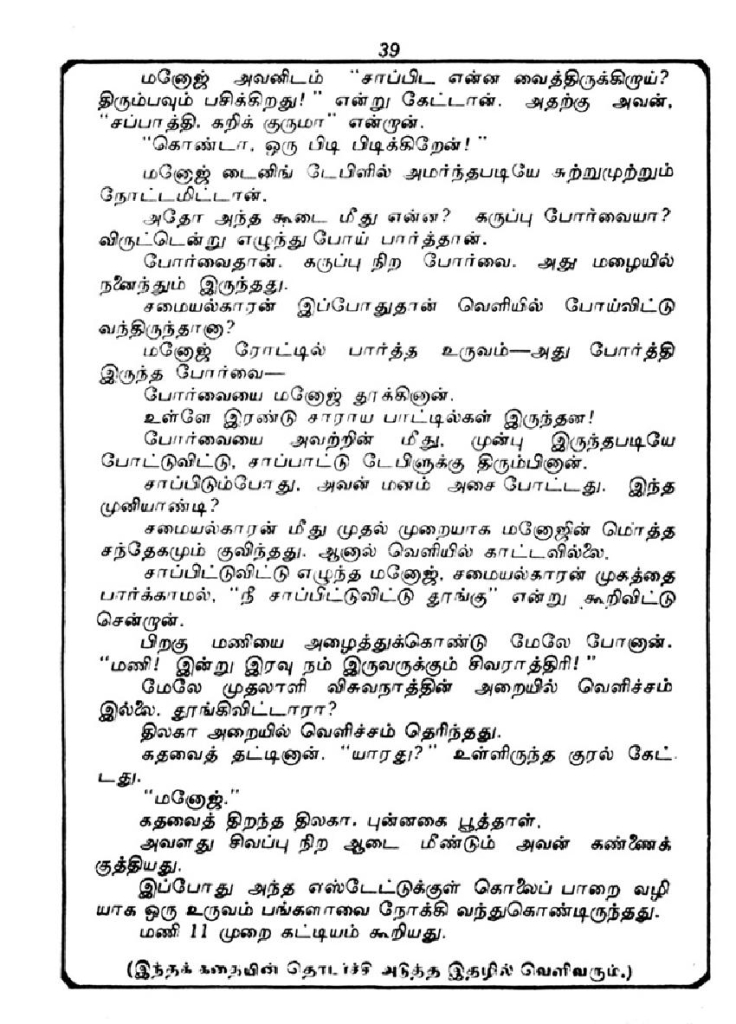 39
மனோஜ் அவனிடம் "சாப்பிட என்ன வைத்திருக்கிறாய்?
திரும்பவும் பசிக்கிறது!" என்று கேட்டான். அதற்கு அவன்,
"சப்பாத்தி, கறிக் குருமா" என்றான்.
"கொண்டா, ஒரு பிடி பிடிக்கிறேன்!"
மனோஜ் டைனிங் டேபிளில் அமர்ந்தபடியே சுற்றுமுற்றும்
நோட்டமிட்டான்.
அதோ அந்த கூடை மீது என்ன? கருப்பு போர்வையா?
விருட்டென்று எழுந்து போய் பார்த்தான்.
போர்வைதான். கருப்பு நிற போர்வை. அது மழையில்
நனைந்தும் இருந்தது.
சமையல்காரன் இப்போதுதான் வெளியில் போய்விட்டு
வந்திருந்தானா?
மனோஜ் ரோட்டில் பார்த்த உருவம்—அது போர்த்தி
இருந்த போர்வை—
போர்வையை மனோஜ் தூக்கினான்.
உள்ளே இரண்டு சாராய பாட்டில்கள் இருந்தன!
போர்வையை அவற்றின் மீது, முன்பு இருந்தபடியே
போட்டுவிட்டு, சாப்பாட்டு டேபிளுக்கு திரும்பினான்.
சாப்பிடும்போது, அவன் மனம் அசை போட்டது. இந்த
முனியாண்டி?
சமையல்காரன் மீது முதல் முறையாக மனோஜின் மொத்த
சந்தேகமும் குவிந்தது. ஆனால் வெளியில் காட்டவில்லை.
சாப்பிட்டுவிட்டு எழுந்த மனோஜ், சமையல்காரன் முகத்தை
பார்க்காமல், "நீ சாப்பிட்டுவிட்டு தூங்கு" என்று கூறிவிட்டு
சென்றான்.
பிறகு மணியை அழைத்துக்கொண்டு மேலே போனான்.
"மணி! இன்று இரவு நம் இருவருக்கும் சிவராத்திரி!"
மேலே முதலாளி விசுவநாத்தின் அறையில் வெளிச்சம்
இல்லை. தூங்கிவிட்டாரா?
திலகா அறையில் வெளிச்சம் தெரிந்தது.
கதவைத் தட்டினான். "யாரது?" உள்ளிருந்த குரல் கேட்
டது.
"மனோஜ்."
கதவைத் திறந்த திலகா, புன்னகை பூத்தாள்.
அவளது சிவப்பு நிற ஆடை மீண்டும் அவன் கண்ணைக்
குத்தியது.
இப்போது அந்த எஸ்டேட்டுக்குள் கொலைப் பாறை வழி
யாக ஒரு உருவம் பங்களாவை நோக்கி வந்துகொண்டிருந்தது.
மணி 11 முறை கட்டியம் கூறியது.
(இந்தக் கதையின் தொடர்ச்சி அடுத்த இதழில் வெளிவரும்.)